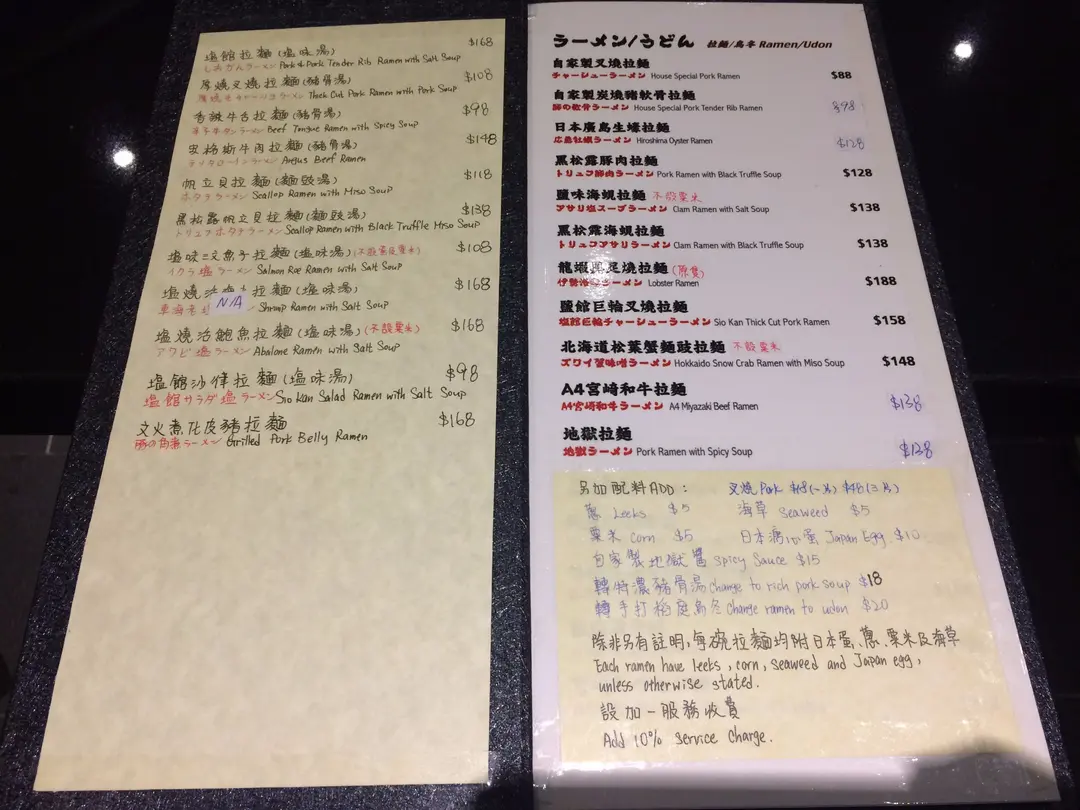 塩館拉麵(塩味湯) $168
しおかんラーメン Pork & Pork Tender Rib Ramen with Salt Soup
厚燒叉燒拉麵(豬骨湯) $108
Thick Cut Pork Ramen with Pork Soup
香辣牛舌拉麵(豬骨湯) $98
Beef Tongue Ramen with Spicy Soup
安格斯牛肉拉麵(豬骨湯) $148
Angus Beef Ramen
帆立貝拉麵(麵豉湯) $118
ホタテラーメン Scallop Ramen with Miso Soup
黑松露帆立貝拉麵(麵豉湯) $138
トリュフホタテラーメン Scallop Ramen with Black Truffle Miso Soup
塩味三文魚子拉麵(塩味湯)(不設粟米) $108
イクラ塩ラーメン Salmon Roe Ramen with Salt Soup
塩燒活 拉麵(塩味湯) $168
N/A Shrimp Ramen with Salt Soup
塩燒活鮑魚拉麵(塩味湯)(不設粟米) $168
アワビ塩ラーメン Abalone Ramen with Salt Soup
塩館沙律拉麵(塩味湯) $98
塩館サラダ塩ラーメン Sio Kan Salad Ramen with Salt Soup
文火煮化皮豬拉麵 $168
豚の角煮ラーメン Grilled Pork Belly Ramen
ラーメン/うどん 拉麵/烏冬 Ramen/Udon
自家製叉燒拉麵
チャーシューラーメン House Special Pork Ramen $88
自家製炭燒豬軟骨拉麵
豚の軟骨ラーメン House Special Pork Tender Rib Ramen $98
日本廣島生蠔拉麵
広島牡蠣ラーメン Hiroshima Oyster Ramen $128
黑松露豚肉拉麵
トリュフ豚肉ラーメン Pork Ramen with Black Truffle Soup $128
鹽味海蜆拉麵 不設粟米
アサリ塩スープラーメン Clam Ramen with Salt Soup $138
黑松露海蜆拉麵
トリュフアサリラーメン Clam Ramen with Black Truffle Soup $138
龍蝦 燒拉麵
伊勢海老ラーメン Lobster Ramen $188
鹽館巨輪叉燒拉麵
塩館巨輪チャーシューラーメン Sio Kan Thick Cut Pork Ramen $158
北海道松葉蟹麵豉拉麵 不設粟米
ズワイ蟹味噌ラーメン Hokkaido Snow Crab Ramen with Miso Soup $148
A4宮崎和牛拉麵
A4宮崎和牛ラーメン A4 Miyazaki Beef Ramen $138
地獄拉麵
地獄ラーメン Pork Ramen with Spicy Soup $128
另加配料ADD: 叉燒 Pork $18(一片) $48(三片)
蔥 Leeks $5 海草 Seaweed $5
粟米 corn $5 日本溏心蛋 Japan Egg $10
自家製地獄醬 Spicy Sauce $15
轉特濃豬骨湯 change to rich pork soup $18
轉手打稻庭烏冬 change ramen to udon $20
除非另有註明,每碗拉麵均附日本蛋、蔥、粟米及海草
Each ramen have leeks, corn, seaweed and Japan egg,
unless otherwise stated.
設加一服務收費
Add 10% service charge.